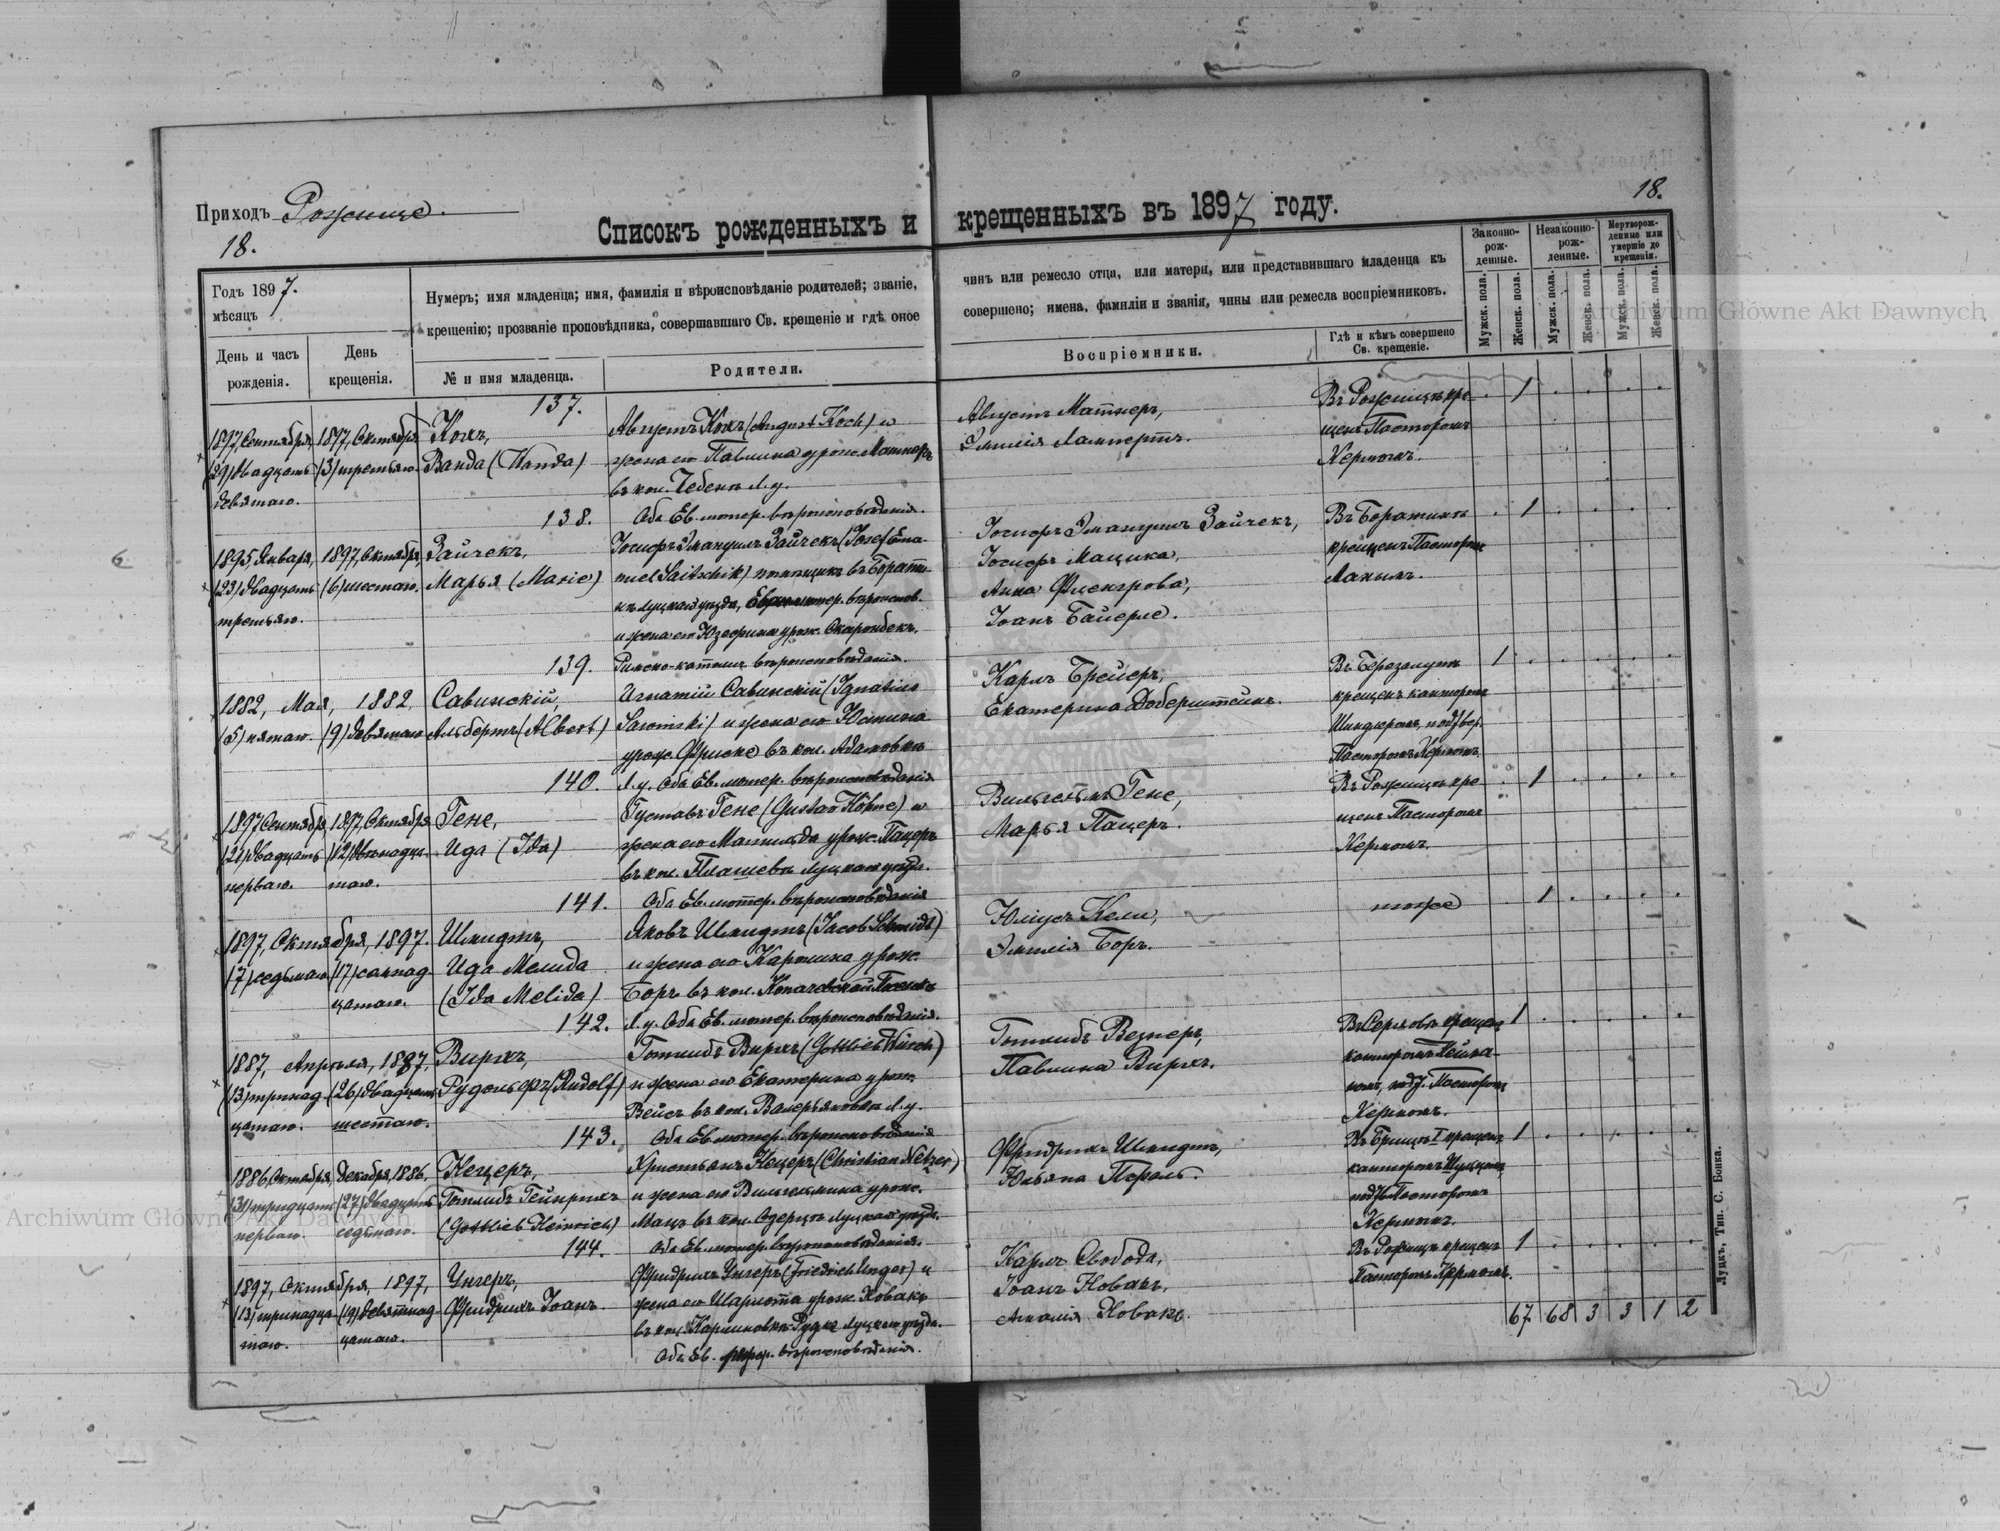 Приходъ Рожище.
18.
18.
Списокъ рожденныхъ и крещенныхъ въ 1897 году.
Годъ 1897.
мѣсяцъ
День и часъ
рожденія.
День
крещенія.
Нумеръ; имя младенца; имя, фамилія и вѣроисповѣданіе родителей; званіе,
крещенію; прозваніе проповѣдника, совершавшаго Св. крещеніе и гдѣ оное
№ и имя младенца.
Родители.
чинъ или ремесло отца, или матери, или представившаго младенца къ
совершено; имена, фамиліи и званія, чины или ремесла воспріемниковъ.
Воспріемники.
Гдѣ и кѣмъ совершено
Св. крещеніе.
Законно-
рож-
денные.
Незаконно-
рож-
денные.
Мертворож-
денные или
умершіе до
крещенія.
Мужск. пола.
Женск. пола.
Мужск. пола.
Женск. пола.
Мужск. пола.
Женск. пола.
137.
1897, Сентября,
(29) двадцать
девятаго.
1897, Октября
(3) третьяго.
Кохъ,
Ванда (Wanda)
Августъ Кохъ (August Koch) и
жена его Павлина урож. Матнеръ
въ кол. Л.у.
Оба Ев. лютер. вѣроисповѣданія.
Августъ Матнеръ,
Эмилія Лампертъ.
Въ Рожищѣ кре-
щенъ Пасторомъ
Керномъ.
1
138.
1895, Января,
(23) двадцать
третьяго.
1897, Октября,
(6) шестаго.
Зайчекъ,
Марья (Marie)
Іосифъ Эмануилъ Зайчекъ (Josef Ema-
nuel Saitschik) помѣщикъ въ Борати-
нѣ Луцкаго уѣзда, лютер. вѣроиспов.
и жена его Юзефина урож.
Римско-католич. вѣроисповѣданія.
Іосифъ Эмануилъ Зайчекъ,
Іосифъ Мацика,
Анна
Іоанъ Байерле.
Въ Боратинѣ
крещенъ Пасторомъ
1
139.
1882, Мая,
(5) пятаго.
1882,
(9) девятаго
Савинскій,
Альбертъ (Albert)
Игнатій Савинскій (Ignatius
Sawinski) и жена его Юстина
урож. Фриске въ кол. Адамовкѣ
Л.у. Оба Ев. лютер. вѣроисповѣданія
Карлъ Брейеръ,
Екатерина Доберштейнъ.
Въ Березолупѣ
крещенъ канторомъ
Шиндлеромъ, подтвер.
Пасторомъ Керномъ.
1
140.
1897 Сентября
(21) двадцать
перваго.
1897, Октября
(12) двѣнадца-
таго.
Гене,
Ида (Ida)
Густавъ Гене (Gustav Höhne) и
жена его Матильда урож. Пацеръ
въ кол. Луцкаго уѣзда.
Оба Ев. лютер. вѣроисповѣданія
Вильгельмъ Гене,
Марья Пацеръ.
Въ Рожищѣ кре-
щенъ Пасторомъ
Керномъ.
1
141.
1897, Октября, 1897.
(7) седьмаго
(17) семнад-
цатаго.
Шмидтъ,
Ида Мелида
(Ida Melida)
Яковъ Шмидтъ (Jacob Schmidt)
и жена его Каролина урож.
Боръ въ кол.
Л.у. Оба Ев. лютер. вѣроисповѣданія.
Юліусъ Кели,
Эмилія Боръ.
тоже
1
142.
1887, Апрѣля, 1887,
(13) тринад-
цатаго.
(26) двадцать
шестаго.
Вирхъ,
Рудольфъ (Rudolf)
Готлибъ Вирхъ (Gottlieb Würch)
и жена его Екатерина урож.
Вейсъ въ кол. Валерьяновкѣ Л.у.
Оба Ев. лютер. вѣроисповѣданія
Готлибъ Везнеръ,
Павлина Вирхъ.
крещенъ
канторомъ
Пасторомъ
Керномъ.
1
143.
1886, Октября,
(31) тридцать
перваго.
Декабря, 1886,
(27) двадцать
седьмаго.
Нецеръ,
Готлибъ Гейнрихъ
(Gottlieb Heinrich)
Христьянъ Нецеръ (Christian Netzer)
и жена его Вильгельмина урож.
Мацъ въ кол. Луцкаго уѣзда.
Оба Ев. лютер. вѣроисповѣданія.
Фридрихъ Шмидтъ,
Юльяна
крещенъ
канторомъ
Пасторомъ
Керномъ.
1
144.
1897, Октября, 1897,
(13) тринадца-
таго.
(19) девятнад-
цатаго.
Унгеръ,
Фридрихъ Іоанъ.
Фридрихъ Унгеръ (Friedrich Unger) и
жена его Шарлота урож. Новакъ
въ кол. Луцкаго уѣзда.
Оба Ев. вѣроисповѣданія.
Карлъ Свобода,
Іоанъ Новакъ,
Амалія Новакъ.
Въ Рожищѣ крещенъ
Пасторомъ Керномъ.
1
67 68 3 3 1 2
Луцкъ, Тип. С. Бонка.
Archiwum Główne Akt Dawnych
Archiwum Główne Akt Dawnych